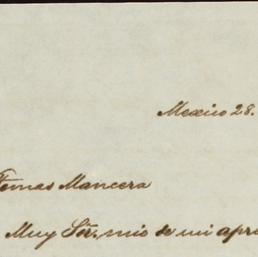 Mexico 28.
Tomas Mancera
Muy Señ. mio de mi apre